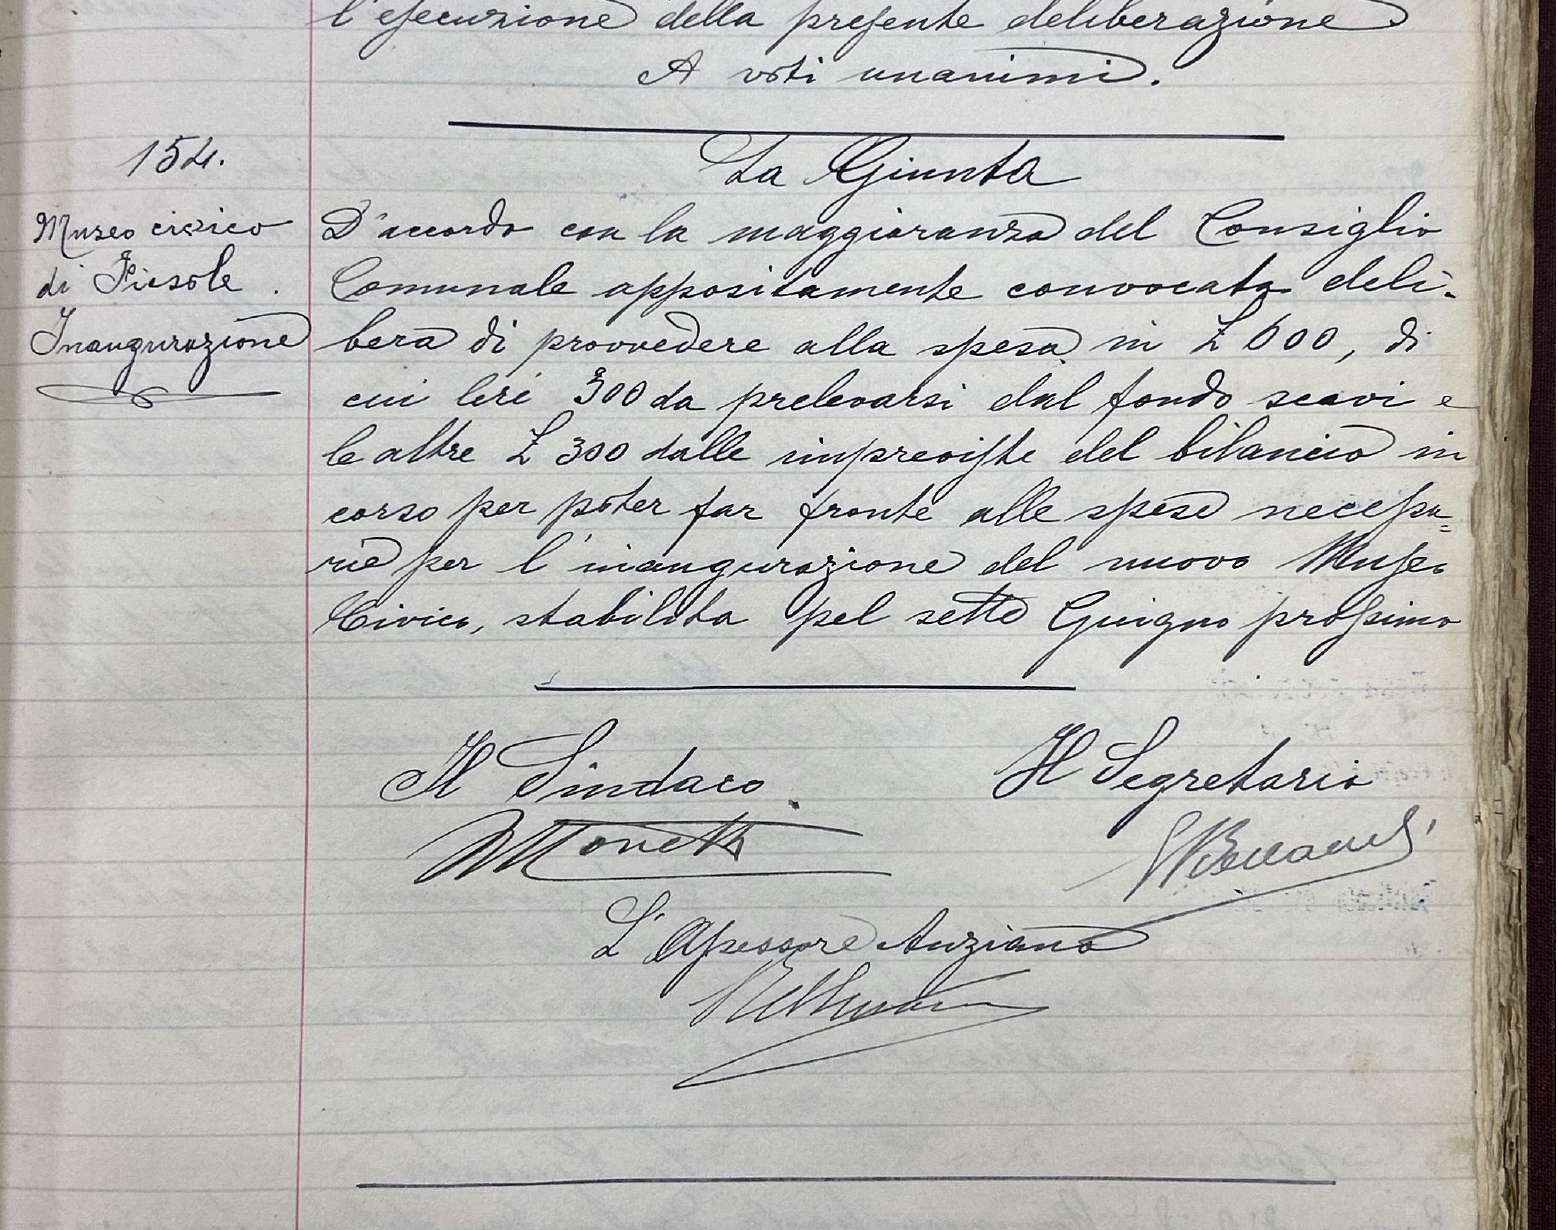 l'esecuzione della presente deliberazione
A voti unanimi.
154.
Museo civico
di Fiesole.
Inaugurazione
La Giunta
D'accordo con la maggioranza del Consiglio
Comunale appositamente convocata deli-
bera di provvedere alla spesa in £ 600, di
cui lire 300 da prelevarsi dal fondo scavi e
le altre £ 300 dalle impreviste del bilancio in
corso per poter far fronte alle spese necessa=
rie per l'inaugurazione del nuovo Museo
Civico, stabilita pel sette Giugno prossimo
Il Sindaco
Il Segretario
L'Assessore Anziano